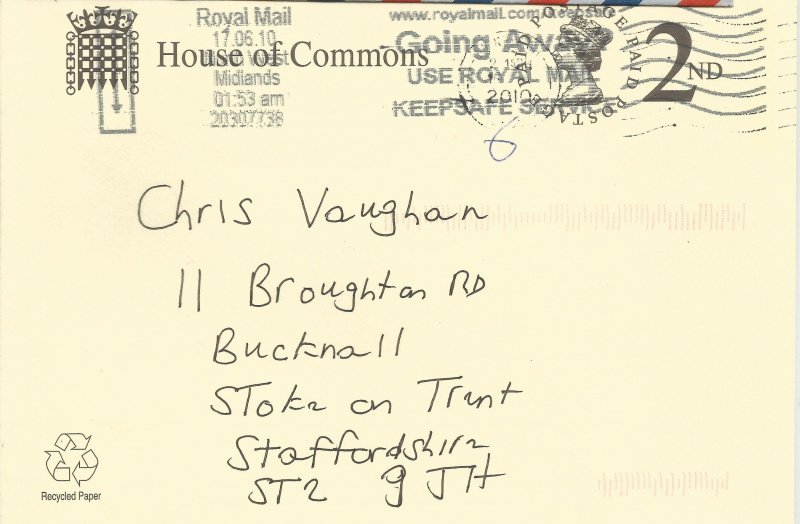 Royal Mail
17.06.10
West
Midlands
01:53 am
20307738
House of Commons
www.royalmail.com/keepsafe
Going Away?
USE ROYAL MAIL
KEEPSAFE SERVICE
2010
POSTAGE PAID POSTAGE PAID
2ND
6
Chris Vaughan
11 Broughton RD
Bucknall
Stoke on Trent
Staffordshire
ST2 9JH
Recycled Paper